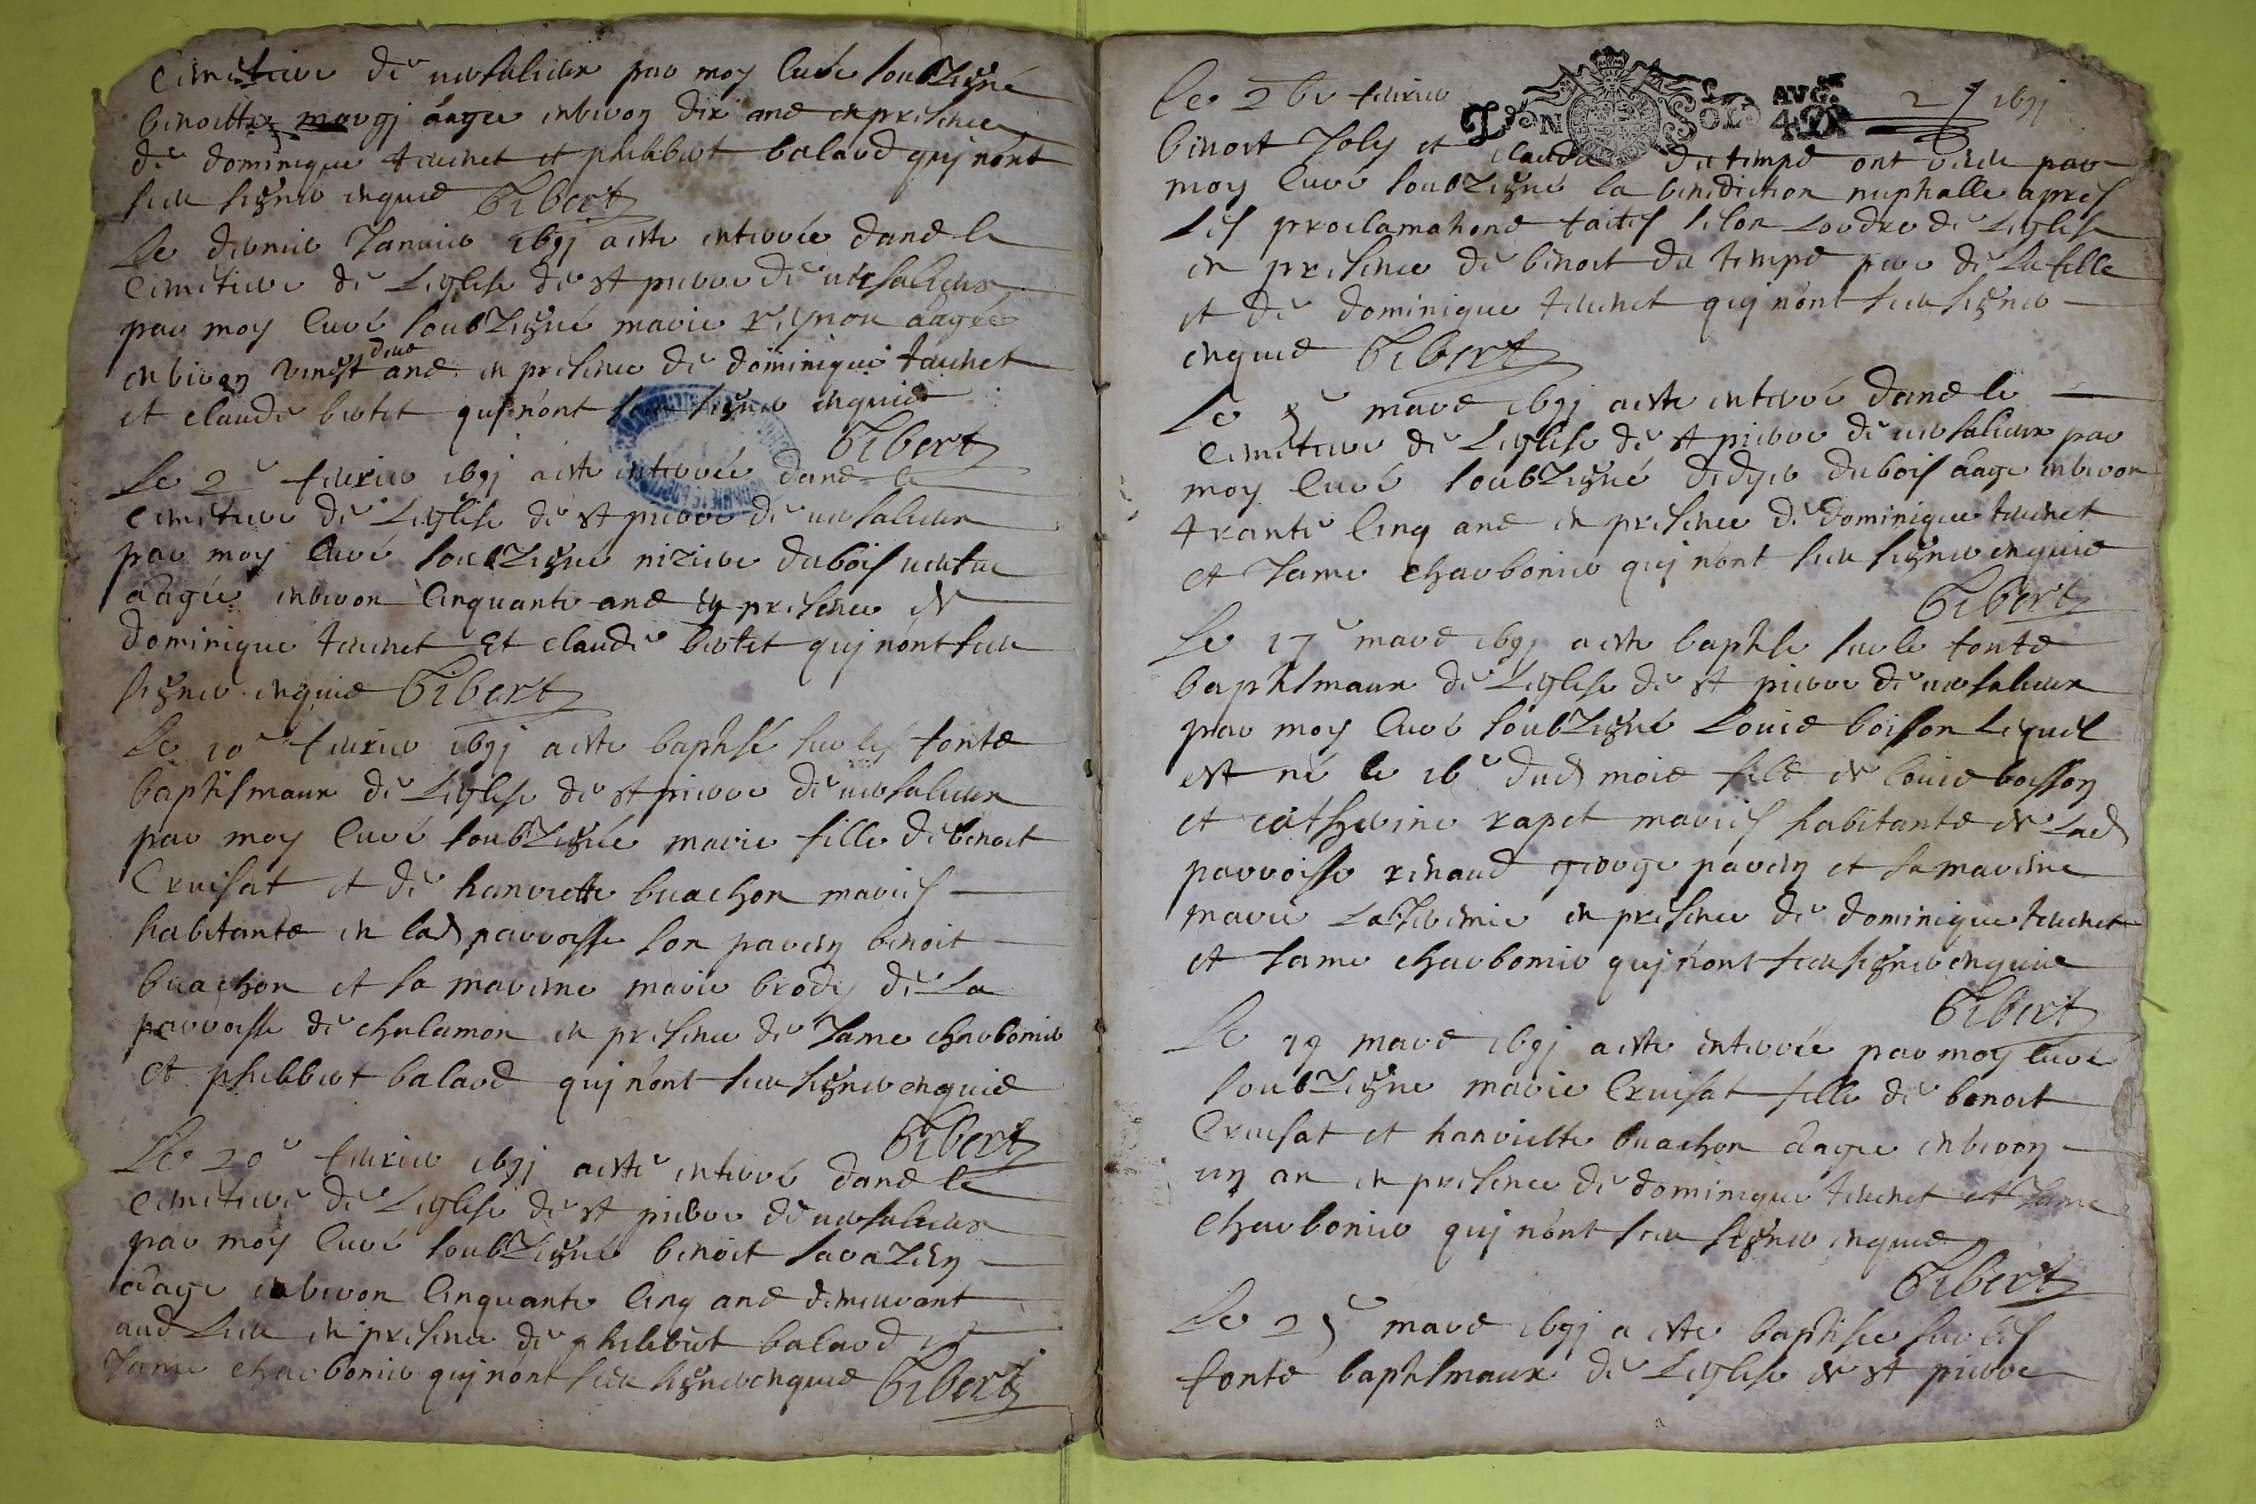 cimetiere de versalieux par moy curé soubzigné
benoitte maugj aagee environ dix ans en presence
de dominique teunet et philibert balard quj n'ont
sceu signer enquis Gibert
Le dernier Janvier 1691 a este enterrée dans le
cimetiere de Leglise de st pierre de versalieux
par moy curé soubzigné marie reynou aagée
environ vingt deux ans en presence de dominique teunet
et claude bertet quj n'ont sceu signer enquis
Gibert
Le 2e feurier 1691 a este enterrée dans le
cimetiere de Leglise de st pierre de versalieux
par moy curé soubzigné niziere dubois veufue
aagée environ cinquante ans en presence de
dominique teunet Et claude bertet quj n'ont sceu
signer enquis Gibert
Le 10e feurier 1691 a este baptisé sur les fonts
baptismaux de Leglise de st pierre de versalieux
par moy curé soubzignée marie fille de benoit
Cruisat et de hanriette buachon mariés
habitants en lad parroisse son parein benoit
buachon et sa mareine marie brodes de La
parroisse de chalamon en presence de Jame charbonier
et philibert balard quj n'ont sceu signer enquis
Gibert
Le 20e feurier 1691 a este enterré dans le
cimetiere de Leglise de st pierre de versalieux
par moy curé soubzigné benoit savazein
aage environ cinquante cinq ans demeurant
aud Lieu en presence de philibert balard et
Jame charbonier quj n'ont sceu signer enquis Gibert
Le 26e feurier 1691
LYON DIX SOLS AVGon 4D 27
benoit Joly et clauda du temps ont receu par
moy curé soubzigné la benediction nuptialle apres
les proclamations faites selon Lordre de Leglise
en presence de benoit du temps pere de la fille
et de dominique teunet quj n'ont sceu signer
enquis Gibert
Le 5e mars 1691 a este enterré dans le
cimetiere de Leglise de st pierre de versalieux par
moy curé soubzigné didyer dubois aage environ
trante cinq ans en presence de dominique teunet
et Jame charbonier quj n'ont sceu signer enquis
Gibert
Le 17e mars 1691 a este baptise sur le fonts
baptismaux de Leglise de st pierre de versalieux
par moy curé soubzigné Louis boisson Lequel
est né le 16e dud mois fils de Louis boisson
et catherine rapet mariés habitants de Lad
parroisse renaud george parein et sa mareine
marie en presence de dominique teunet
et Jame charbonier quj n'ont sceu signer enquis
Gibert
Le 19 mars 1691 a este enterrée par moy curé
soubzigne marie Cruisat fille de benoit
Cruisat et hanriette buachon aagee environ
un an en presence de dominique teunet et Jame
charbonier quj n'ont sceu signer enquis
Gibert
Le 25e mars 1691 a este baptisee sur les
fonts baptismaux de Leglise de st pierre